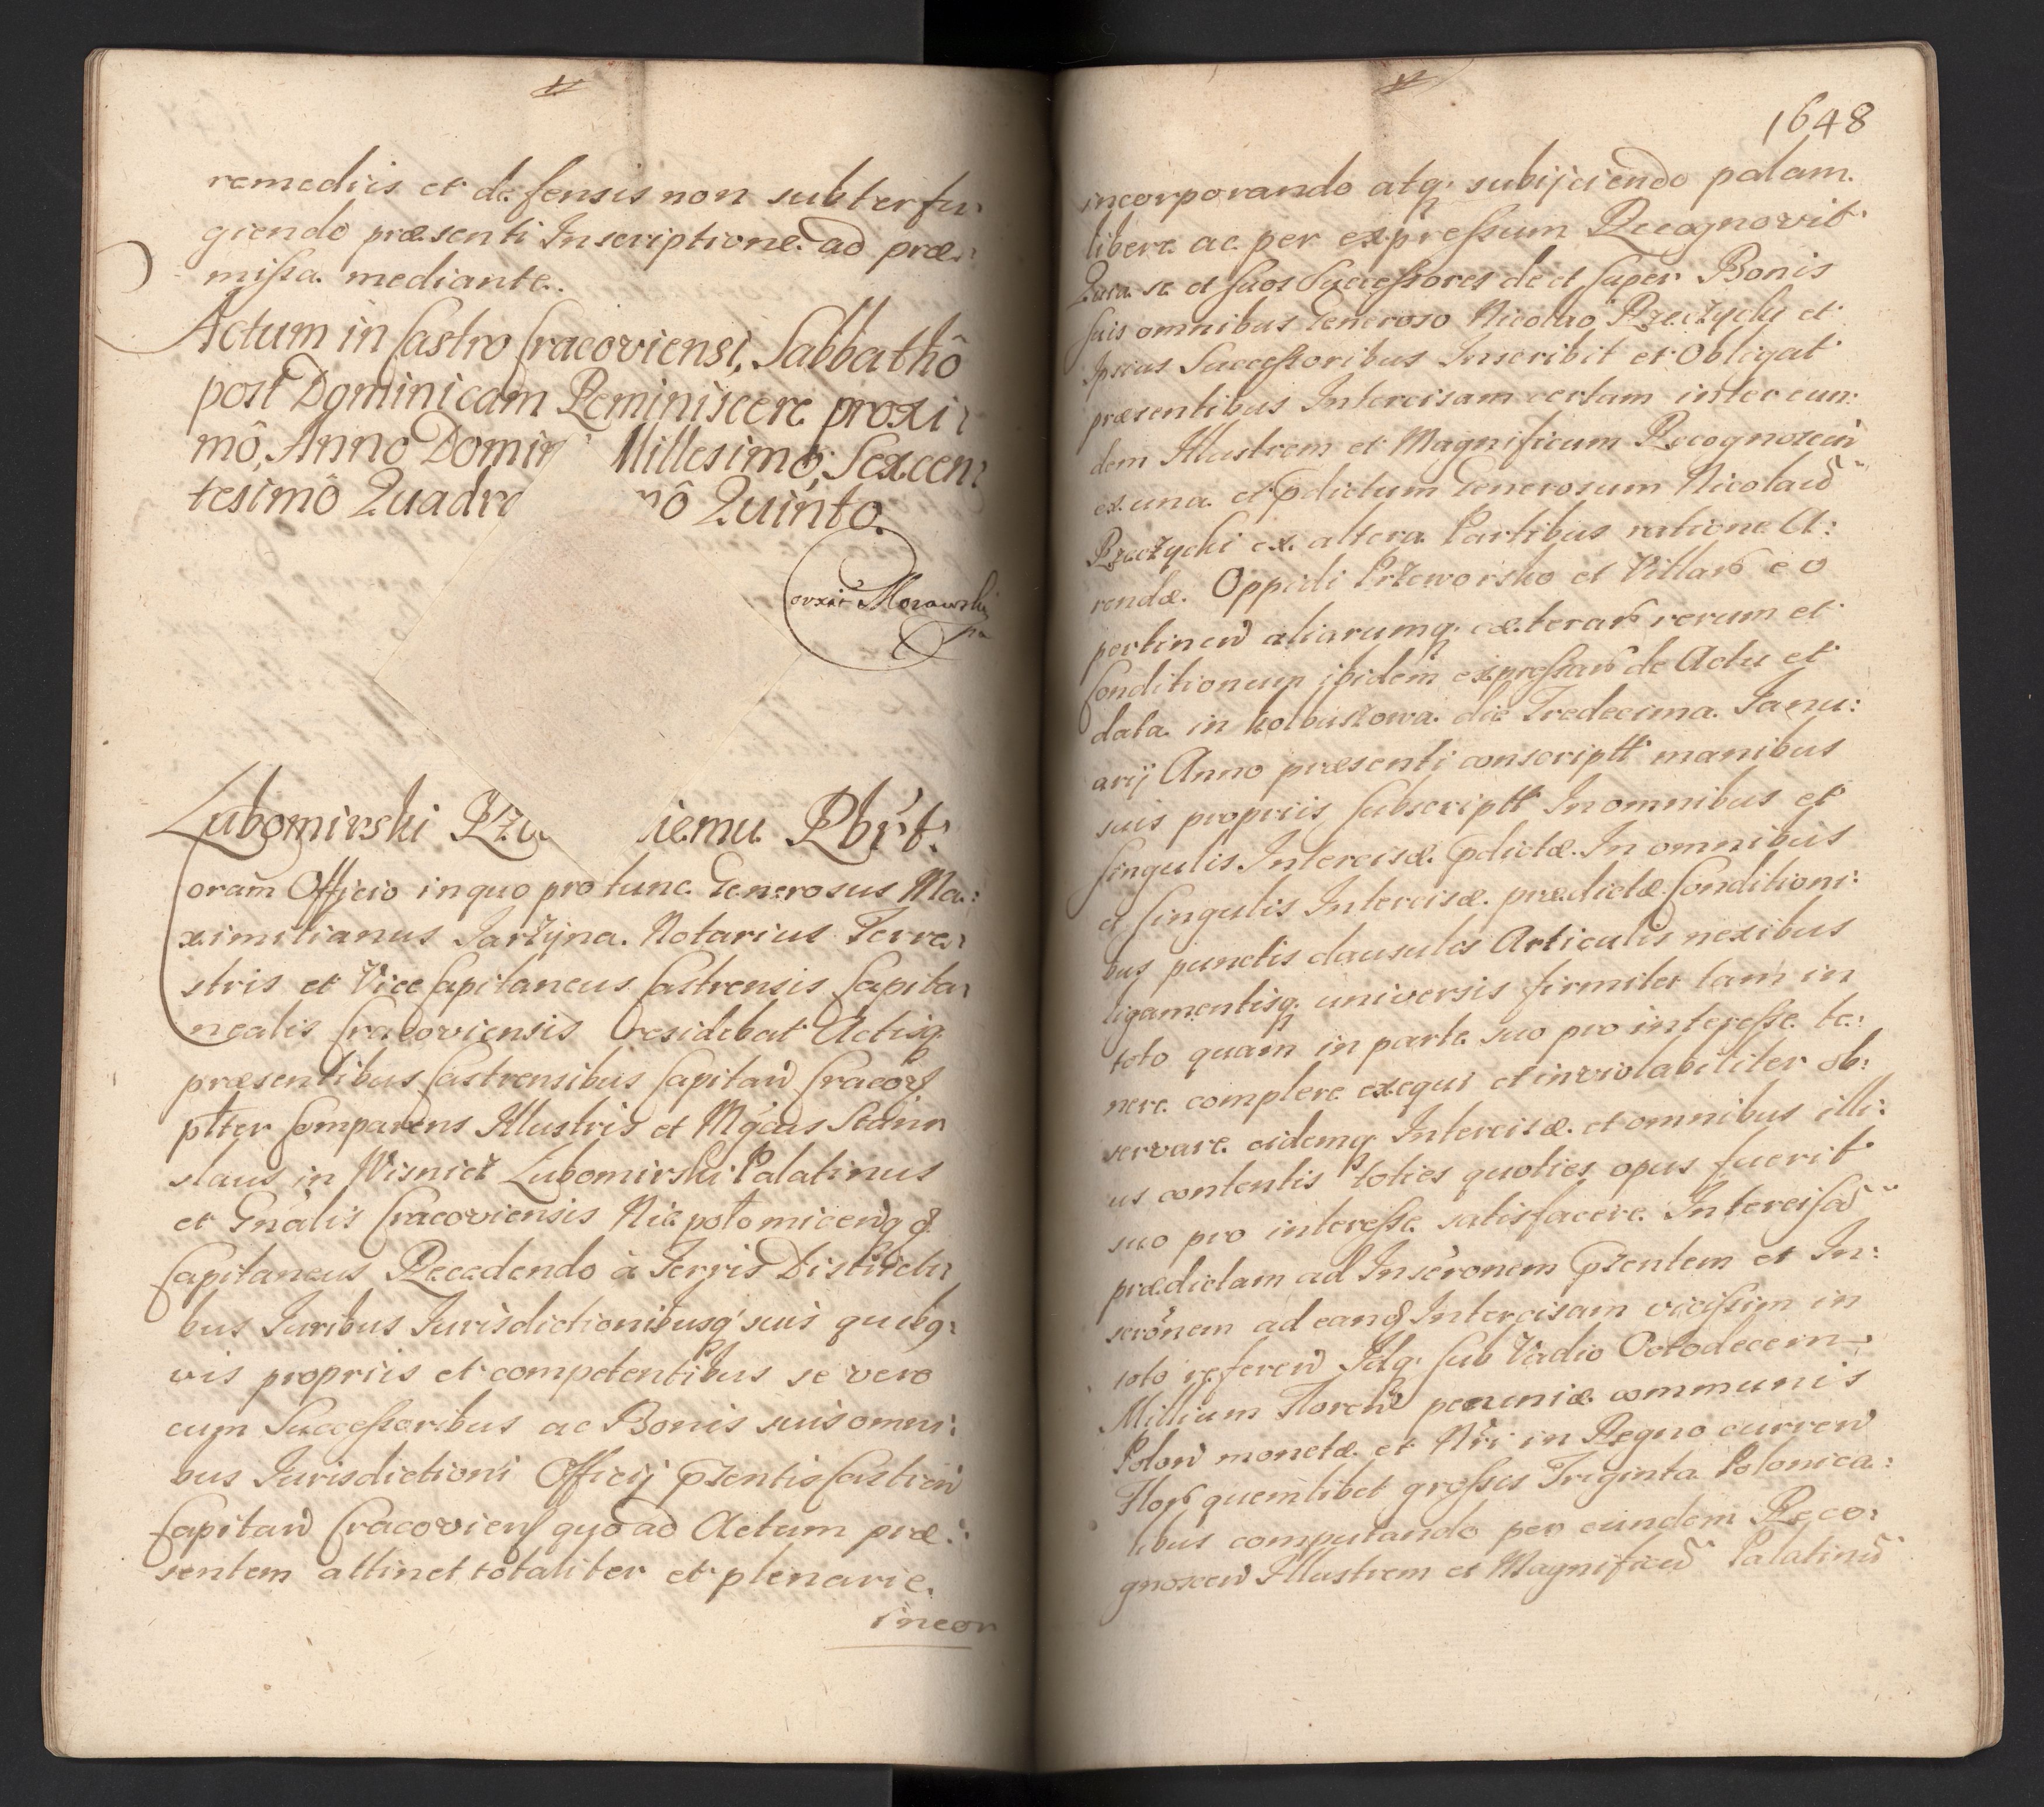 remediis et defensis non subterfu:
giendo præsenti Inscriptione ad præ:
missa mediante.
Actum in Castro Cracoviensi, Sabbathô
post Dominicam Reminiscere proxi:
mô, Anno Domin Millesimô, Sexcen:
tesimô Quadra mô Quinto.
Morawski
Lubomirski Rze iemu Rbrt.
Coram Officio in quo pro tunc Generosus Ma:
ximilianus Jarzyna Notarius Terre:
stris et Vice Capitaneus Castrensis Capita:
nealis Cracoviensis residebat Actisq.
præsentibus Castrensibus Capitan Cracov
pltter Comparens Illustris et Mgcus Stanis
slaus in Wisnicz Lubomirski Palatinus
et Gnalis Cracoviensis Niepolomicen q
Capitaneus Recedendo à Terris Districti:
bus Juribus Jurisdictionibusq suis quibq:
vis propriis et competentibus se vero
cum Successoribus ac Bonis suis omni:
bus Jurisdictioni Officij pzentis Castren
Capitan Cracovien quo ad Actum præ:
sentem attinet totaliter et plenarie
incor
1648
incorporando atq. subijciendo palam
libere ac per expressum Recognovit
Quia se et suos Successores de et super Bonis
suis omnibus Generoso Nicolao Rzeczycki et
Ipsius Successoribus Inscribit et Obligat
præsentibus Intercisam certam inter eun:
dem Illustrem et Magnificum Recognoscen
ex una et pdictum Generosum Nicolau
Rzeczycki ex altera Partibus ratione A:
rendæ Oppidi Przeworsko et Villar eo
pertinen aliarumq. cæterar rerum et
Conditionum ibidem expressar de Actu et
data in Kolbuszowa die Tredecima Janu:
arij Anno præsenti conscriptt manibus
suis propriis subscriptt In omnibus et
singulis Intercisæ pdictæ. In omnibus
et singulis Intercisæ prædictæ Conditioni:
bus punctis clausulis Articulis nexibus
ligamentisq. universis firmiter tam in
toto quam in parte suo pro interesse te:
nere complere exequi et inviolabiliter ob:
servare eidemq. Intercisæ et omnibus illi:
us contentis toties quoties opus fuerit
suo pro interesse satisfacere Intercisa
prædictam ad Inscronem pzentem et In:
scronem ad eand Intercisam vicissim in
toto referen Idq. sub Vadio Octodecem
Millium Floren pecuniæ communis
Polon monetæ et Nri in Regno curren
Flor quemlibet grossis Triginta Polonica:
libus computando per eundem Reco:
gnoscen Illustrem et Magnificu Palatinu